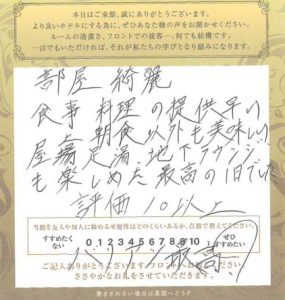 本日はご来館、誠にありがとうございます。
より良いホテルにする為に、ぜひあなた様の声をお聞かせください。
ルームの清潔さ、フロントでの接客…、何でも結構です。
一言でもいただければ、それが私たちの学びとなり励みになります。
部屋 綺麗
食事 料理の提供早い
朝食以外も美味しい
屋 足湯、地下ラウンジ
も楽しめた最高の1日でした
評価10以上
当館を友人や知人に勧める可能性はどのくらいあるか、点数で教えてください。
すすめたくない 0 1 2 3 4 5 6 7 8 9 10 ぜひすすめたい
最高!
ささやかなお礼をさせていただきます。